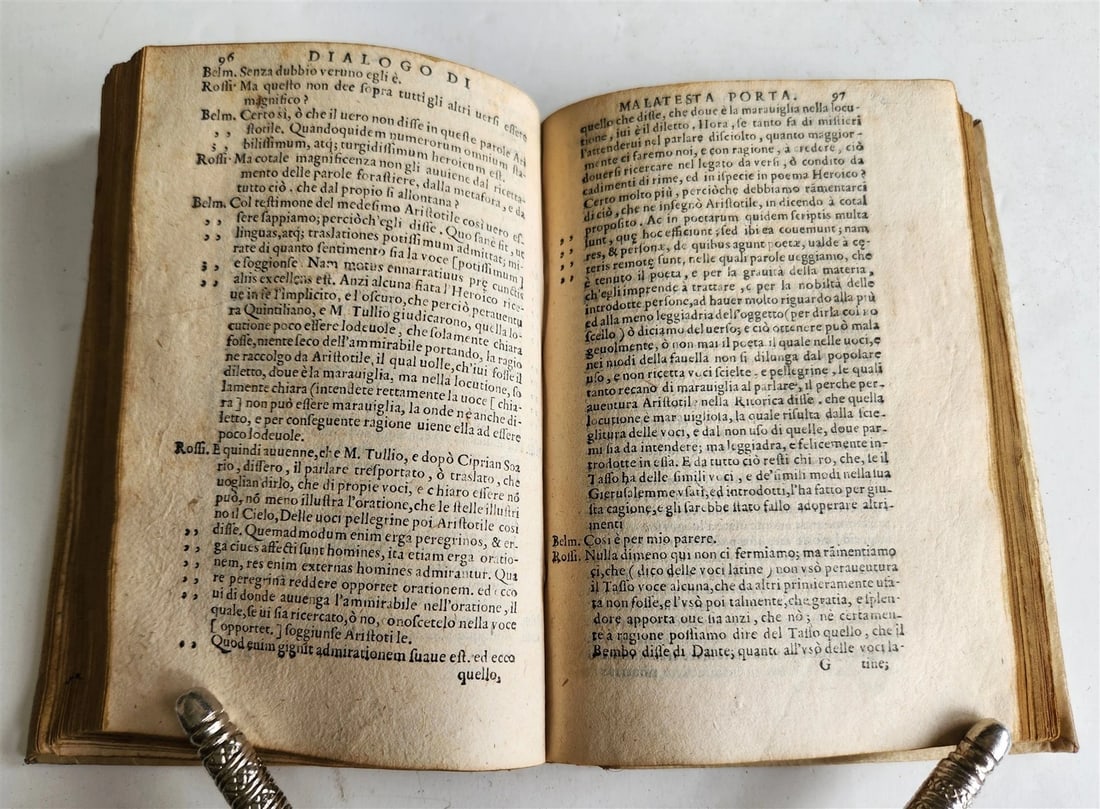 96 DIALOGO DI
Belm. Senza dubbio veruno egli è.
Rossi. Ma questo non dee sopra tutti gli altri uersi essere
magnifico?
Belm. Certo sì, ò che il uero non disse in queste parole Ari
,, stotile. Quandoquidem numerorum omnium sta-
,, bilissimum, atq; turgidissimum heroicum est.
Rossi. Ma cotale magnificenza non gli auuiene dal ricetta-
mento delle parole forastiere, dalla metafora, e da
tutto ciò, che dal propio si allontana?
Belm. Col testimone del medesimo Aristotile così uero es-
,, sere sappiamo; perciòch'egli disse. Quo sanè fit, ut
,, linguas, atq; traslationes potissimum admittat; mi-
rate di quanto sentimento sia la voce [potissimum]
,, e soggionse. Nam motus ennarratiuus pre cunctis
,, aliis excellens est. Anzi alcuna fiata l'Heroico rice-
ue in se l'implicito, e l'oscuro, che perciò perauentu
ra Quintiliano, e M. Tullio giudicarono, quella lo-
cutione poco essere lodeuole, che solamente chiara
fosse, niente seco dell'ammirabile portando, la ragio
ne raccolgo da Aristotile, il qual uolle, ch'iui fosse il
diletto, doue è la marauiglia, ma nella locutione, so
lamente chiara (intendere rettamente la uoce [chia-
ra] non può essere marauiglia, la onde nè anche di-
letto, e per conseguente ragione uiene ella ad essere
poco lodeuole.
Rossi. E quindi auuenne, che M. Tullio, e dopò Ciprian Soa
rio, dissero, il parlare trasportato, ò traslato, che
uoglian dirlo, che di propie voci, e chiaro essere nō
può, nō meno illustra l'oratione, che le stelle illustri
no il Cielo, Delle uoci pellegrine poi Aristotile così
,, disse. Quemadmodum enim erga peregrinos, & er-
,, ga ciues affecti sunt homines, ita etiam erga oratio-
,, nem, res enim externas homines admirantur. Qua
,, re peregrinā reddere opportet orationem. ed ecco
,, ui di donde auuenga l'ammirabile nell'oratione, il
quale, se ui sia ricercato, ò no, conoscetelo nella voce
[opportet.] soggiunse Aristotile.
,, Quod enim gignit admirationem suaue est. ed ecco
quello,
MALATESTA PORTA. 97
quello che disse, che doue è la marauiglia nella locu-
tione, iui è il diletto. Hora, se tanto fa di mistieri
l'attenderui nel parlare disciolto, quanto maggior-
mente ci saremo noi, e con ragione, à credere, ciò
douersi ricercare nel legato da versi, ò condito da
cadimenti di rime, ed in ispecie in poema Heroico?
Certo molto più, perciòche debbiamo rāmentarci
di ciò, che ne insegnò Aristotile, in dicendo à cotal
proposito. Ac in poetarum quidem scriptis multa
,, sunt, quę hoc efficiunt; sed ibi ea couemunt; nam
,, res, & personæ, de quibus agunt poetæ, ualde à cę-
,, teris remotę sunt, nelle quali parole ueggiamo, che
,, è tenuto il poeta, e per la grauità della materia,
ch'egli imprende à trattare, e per la nobiltà delle
introdotte persone, ad hauer molto riguardo alla più
ed alla meno leggiadria dell'oggetto (per dirla col
scello) ò diciamo del uerso; e ciò ottenere può mala
geuolmente, ò non mai il poeta il quale nelle uoci, e
nei modi della fauella non si dilunga dal popolare
uso, e non ricetta voci scielte, e pellegrine, le quali
tanto recano di marauiglia al parlare, il perche per-
auentura Aristotile nella Ritorica disse, che quella
locutione è marauigliosa, la quale risulta dalla scie-
glitura delle voci, e dal non uso di quelle, doue par-
mi sia da intendere; ma leggiadra, e felicemente in-
trodotte in essa. E da tutto ciò resti chiaro, che, se il
Tasso ha delle simili voci, e de' simili modi nella sua
Gierusalemme vsati, ed introdotti, l'ha fatto per giu-
sta cagione, e gli sarebbe stato fallo adoperare altri-
menti
Belm. Così è per mio parere.
Rossi. Nulla dimeno qui non ci fermiamo; ma rāmentiamo
ci, che (dico delle voci latine) non vsò perauentura
il Tasso voce alcuna, che da altri primieramente usa-
ta non fosse, e l'vsò poi talmente, che gratia, e splen-
dore apporta oue sia anzi, che nò; nè certamen-
te à ragione possiamo dire del Tasso quello, che il
Bembo disse di Dante; quanto all'vsò delle voci la-
G tine;